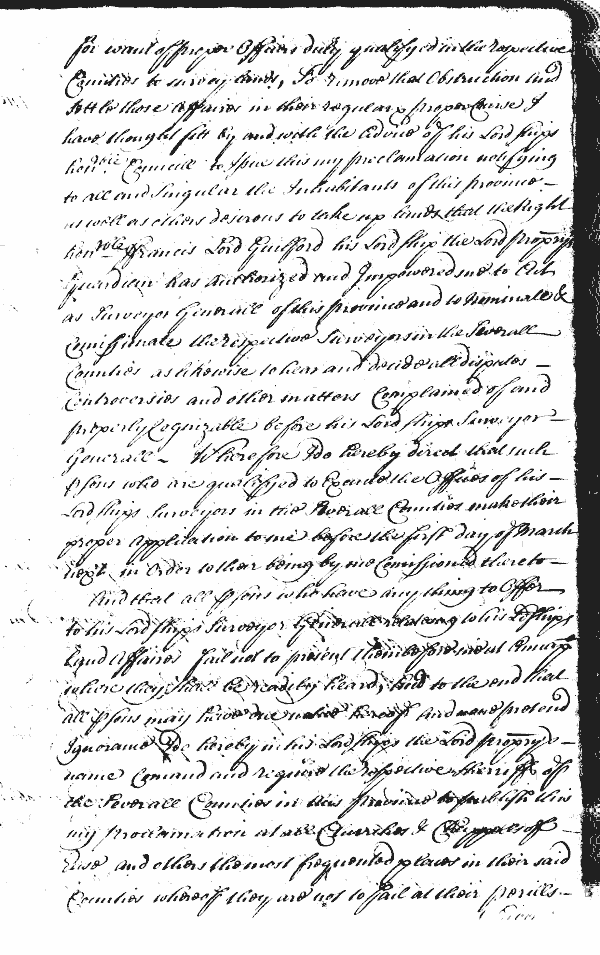 for want of proper Officers duly qualifyed in the respective
Counties to survey lands, To remove that Obstruction and
settle those Affaires in their regular & proper Course I
have thought fitt by and with the Advice of his Lordships
hon:ble Councill to Issue this my proclamation notifying
to all and Singular the Inhabitants of this province
as well as others desirous to take up lands that the Right
hon:ble Francis Lord Guilford his Lordship the Lord Proprys
Guardian has authorized and Impowered me to Act
as Surveyor Generall of this province and to Nominate &
Comissionate the respective Surveyors in the Severall
Counties as likewise to hear and decide all disputes
Controversies and other matters Complained of and
properly Cognizable before his Lordships Surveyor
Generall - Wherefore I do hereby direct that such
psons who are qualifyed to Execute the Offices of his
Lordships Surveyors in the Severall Counties make their
proper Application to me before the first day of March
next in Order to their being by me Comissioned thereto
And that all psons who have any thing to Offer
to his Lordships Surveyor Generall relateing to his Ldships
Land Affaires fail not to present them before me at
where they shall be readily heard, And to the end that
all psons may have due notice hereof And none pretend
Ignorance I do hereby in his Lordships the Lord Proprys
name Comand and require the respective Sherriffs of
the Severall Counties in this province to publish this
my Proclamation at all Churches & Chappels of
Ease and others the most frequented places in their said
Counties whereof they are not to fail at their perills